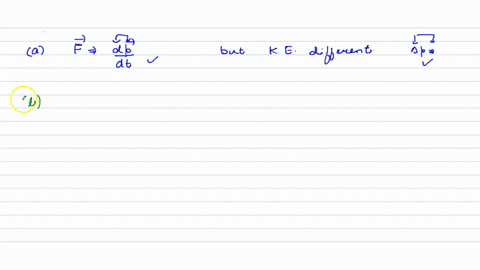 (a) F⃗ ⇒ dp/dt ✓ but K.E. different Δp ✓
b)